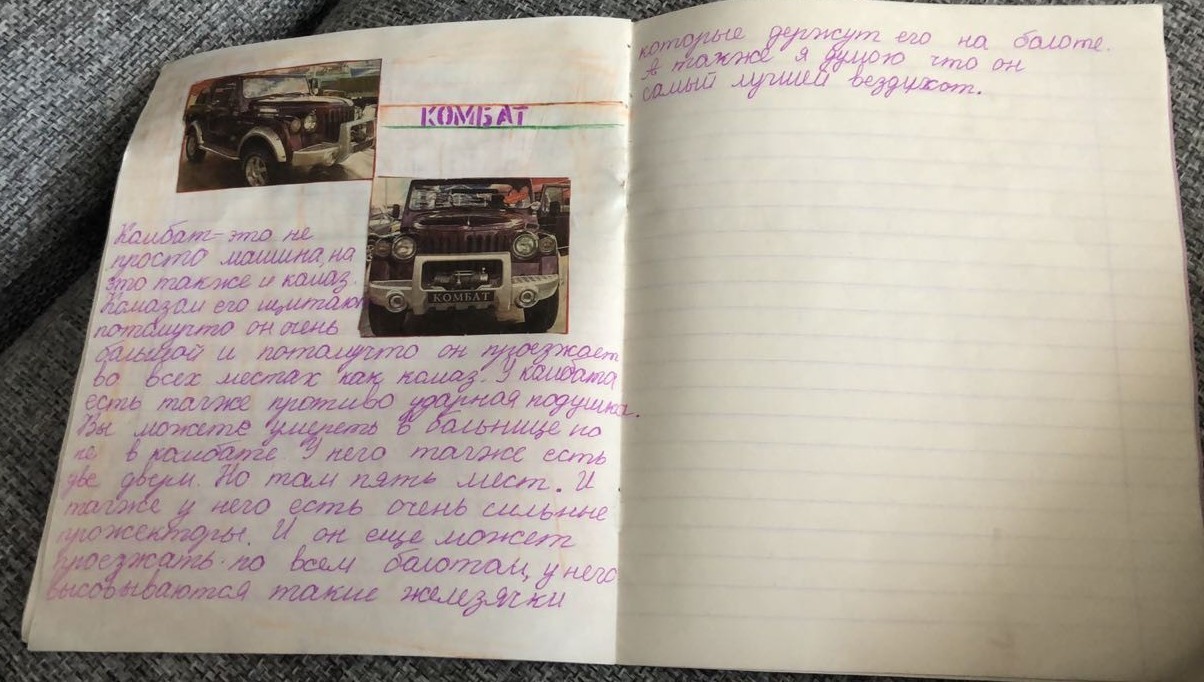 КОМБАТ
КОМБАТ
Комбат-это не
просто машина, на
это также и камаз.
Комазом его щитают
потомучто он очень
большой и потомучто он проезжает
во всех местах как камаз. У комбата
есть тагже противо ударная подушка.
Вы можете умереть в больнице но
не в комбате. У него тагже есть
две двери. Но там пять мест. И
тагже у него есть очень сильные
прожекторы. И он еще может
проезжать по всем болотам, у него
высовываются такие железячки
которые держут его на болоте.
А также я думою что он
самый лучшей вездихот.